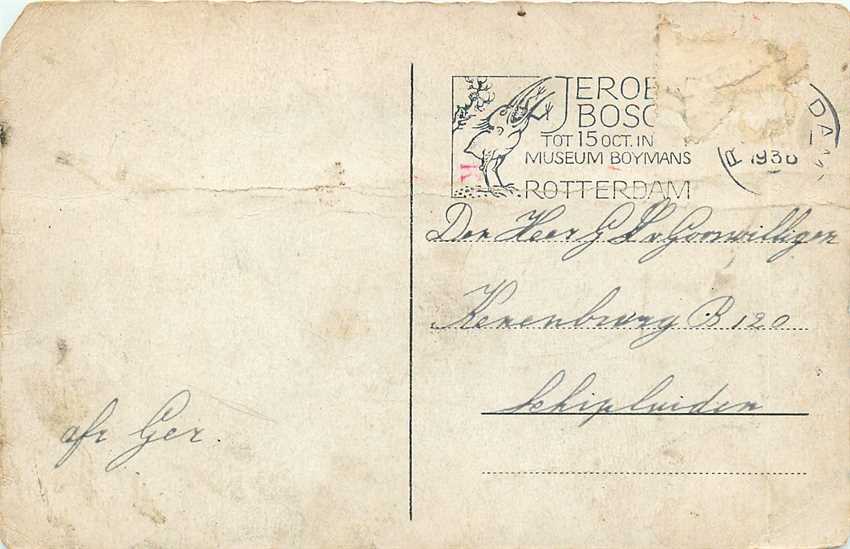 JEROE
BOSC
TOT 15 OCT. IN
MUSEUM BOYMANS
ROTTERDAM
R DAM
1936
Den Heer G v Goorwilligen
Kerenburg B 120
Schipluiden
afz Ger.